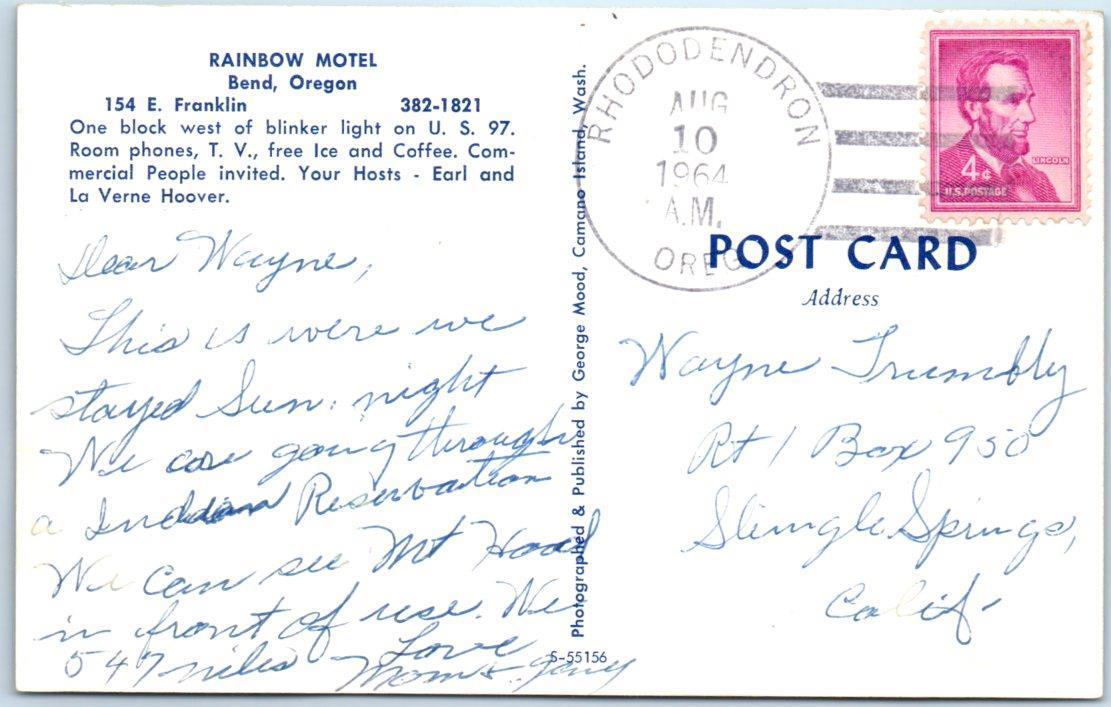 RAINBOW MOTEL
Bend, Oregon
154 E. Franklin 382-1821
One block west of blinker light on U. S. 97.
Room phones, T. V., free Ice and Coffee. Com-
mercial People invited. Your Hosts - Earl and
La Verne Hoover.
Dear Wayne,
This is were we
stayed Sun. night
We are going through
a Indian Reservation
We can see Mt Hood
in front of use. We
547 miles Love
Mom &
Photographed & Published by George Mood, Camano Island, Wash.
S-55156
RHODODENDRON
AUG
10
1964
A.M.
OREG
4¢
LINCOLN
U.S. POSTAGE
POST CARD
Address
Wayne Trumbly
Rt 1 Box 950
Shingle Springs,
Calif-